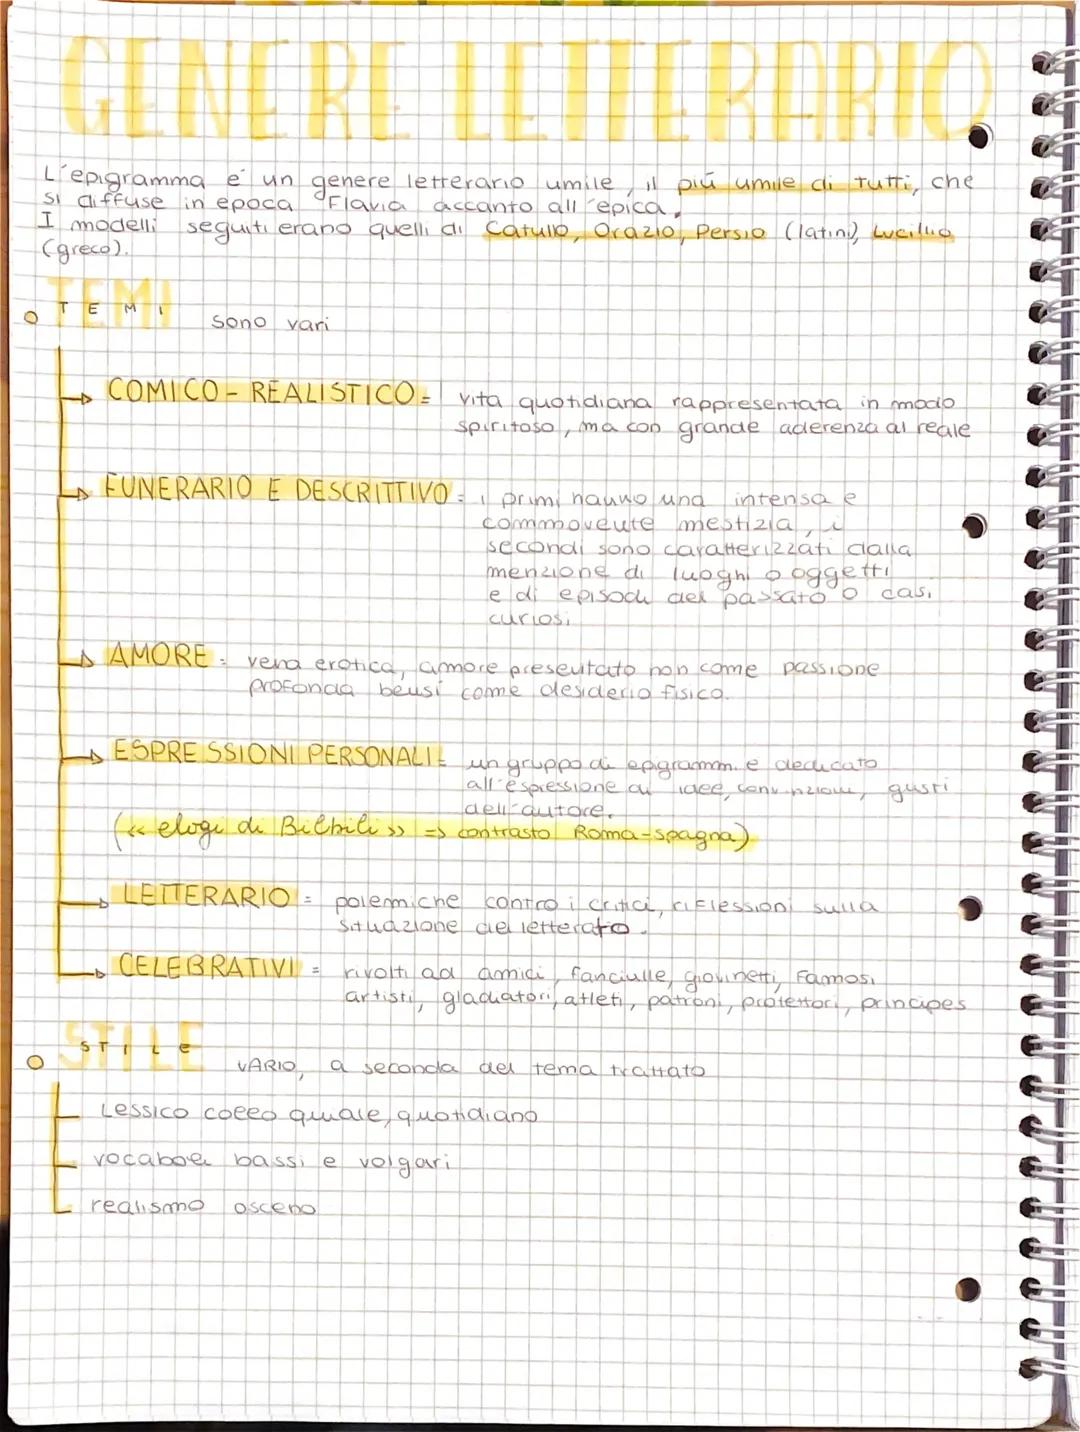 GENERE LETTERARIO
L'epigramma é un genere letterario umile, il piú umile di tutti, che
si diffuse in epoca Flavia accanto all'epica.
I modelli seguiti erano quelli di Catullo, Orazio, Persio (latini), Lucillio
(greco).
TEMI sono vari
COMICO-REALISTICO= vita quotidiana rappresentata in modo
spiritoso, ma con grande aderenza al reale
FUNERARIO E DESCRITTIVO= i primi hanno una intensa e
commovente mestizia, i
secondi sono caratterizzati dalla
menzione di luoghi o oggetti
e di episodi del passato o casi
curiosi
AMORE= vena erotica, amore presentato non come passione
profonda bensí come desiderio fisico.
ESPRESSIONI PERSONALI= un gruppo di epigrammi e dedicato
all'espressione di idee, convinzioni, gusti
dell'autore.
(«elogi di Bilbili» => contrasto Roma-Spagna)
LETTERARIO= polemiche contro i critici, riflessioni sulla
situazione del letterato.
CELEBRATIVI= rivolti ad amici, fanciulle, giovinetti, famosi
artisti, gladiatori, atleti, patroni, protettori, principes
STILE VARIO, a seconda del tema trattato
Lessico colloquiale, quotidiano
vocaboli bassi e volgari
realismo osceno